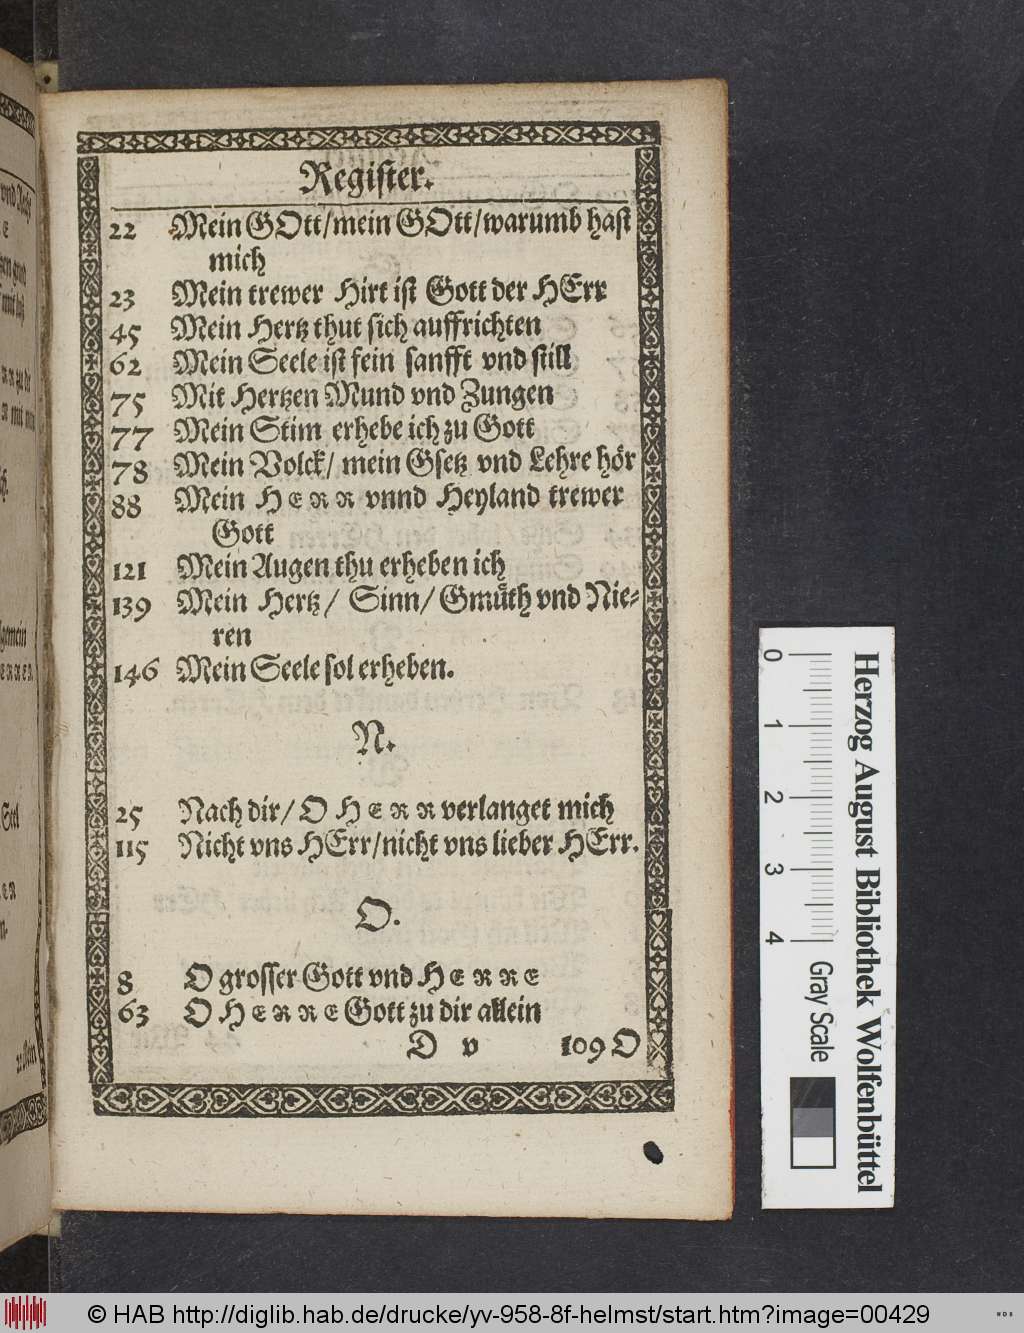 Register.
22 Mein GOtt/mein GOtt/warumb hast
mich
23 Mein trewer Hirt ist Gott der HErr
45 Mein Hertz thut sich auffrichten
62 Mein Seele ist fein sanfft vnd still
75 Mit Hertzen Mund vnd Zungen
77 Mein Stim erhebe ich zu Gott
78 Mein Volck/ mein Gsetz vnd Lehre hör
88 Mein HERR vnnd Heyland trewer
Gott
121 Mein Augen thu erheben ich
139 Mein Hertz/ Sinn/ Gmüth vnd Nie-
ren
146 Mein Seele sol erheben.
N.
25 Nach dir/ O HERR verlanget mich
115 Nicht vns HErr/nicht vns lieber HErr.
O.
8 O grosser Gott vnd HERRE
63 O HERRE Gott zu dir allein
D v 109 O
0 1 2 3 4 Gray Scale
Herzog August Bibliothek Wolfenbüttel
© HAB http://diglib.hab.de/drucke/yv-958-8f-helmst/start.htm?image=00429